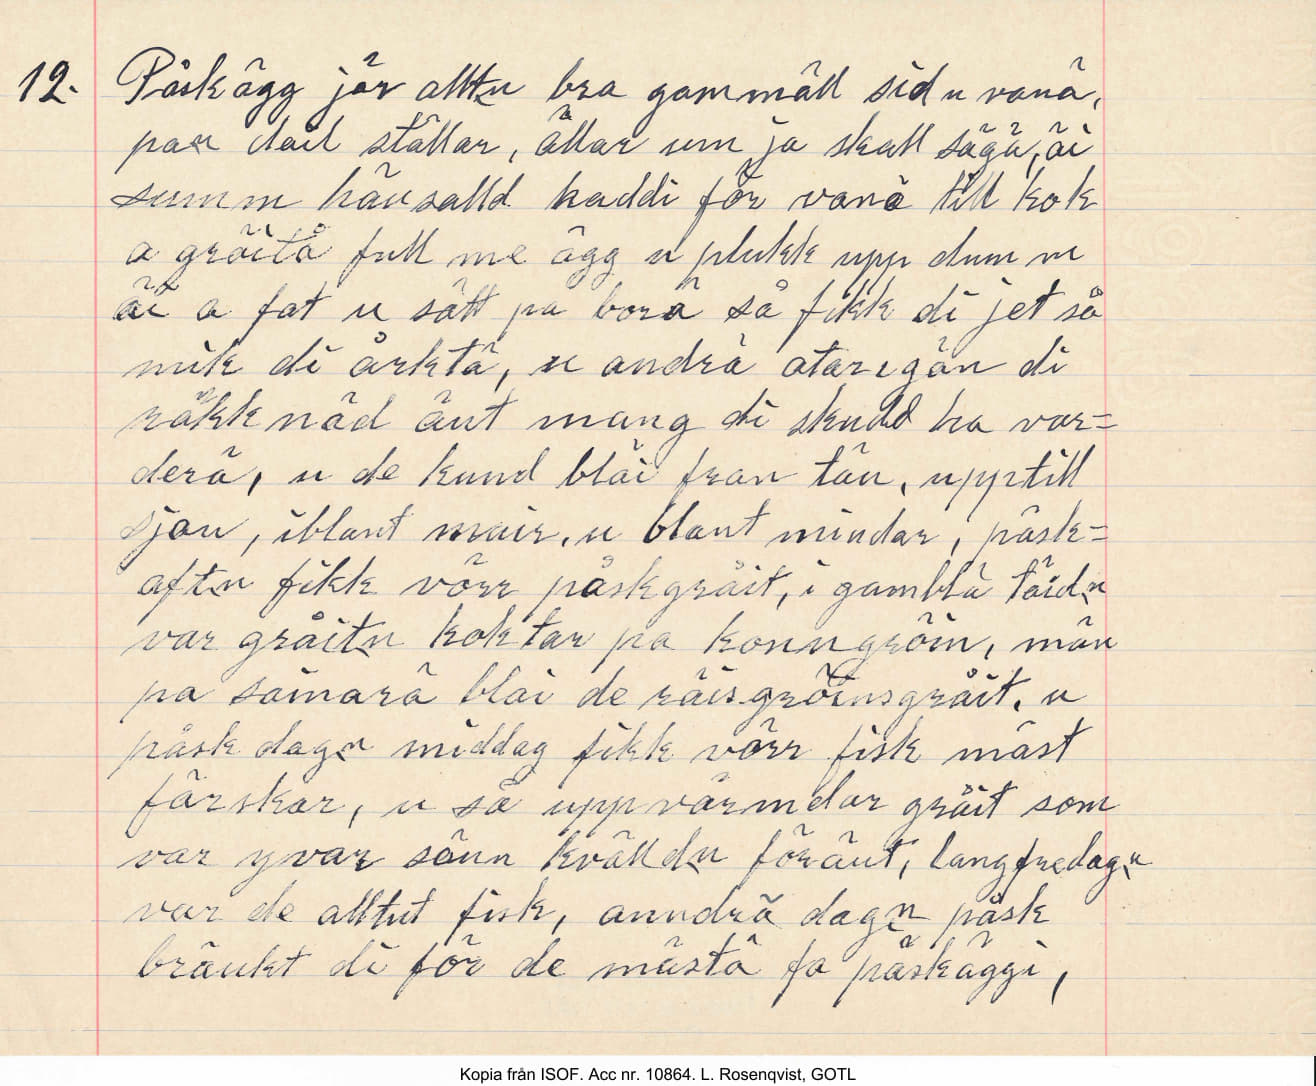 12. Påskägg jär alltn bra gammäll sid u vanä,
pa n dail ställar, ällar um ja skall sägä, äi
summ häusalld haddi för vanä till kok
a gräitå full me ägg u plukk upp dumm
äi a fat u sätt pa borä så fikk di jet så
mik di årktä, u andrä atarigän di
räkknäd äut mang di skudd ha var=
derä, u de kund bläi fran täu, upptill
sjau, iblant mair, u blant mindar, påsk=
aftn fikk vörr påskgräit, i gamblä täidn
var gråitn koktar pa konngröin, män
pa sainarä blai de räisgröinsgråit, u
påskdagn middag fikk vörr fisk mäst
färskar, u så uppvärmdar gråit som
var yvar sänn kvälldn föräut, langfredagn
var de alltut fisk, anndrä dagn påsk
bräukt di för de mästä fa påskäggi,
Kopia från ISOF. Acc nr. 10864. L. Rosenqvist, GOTL